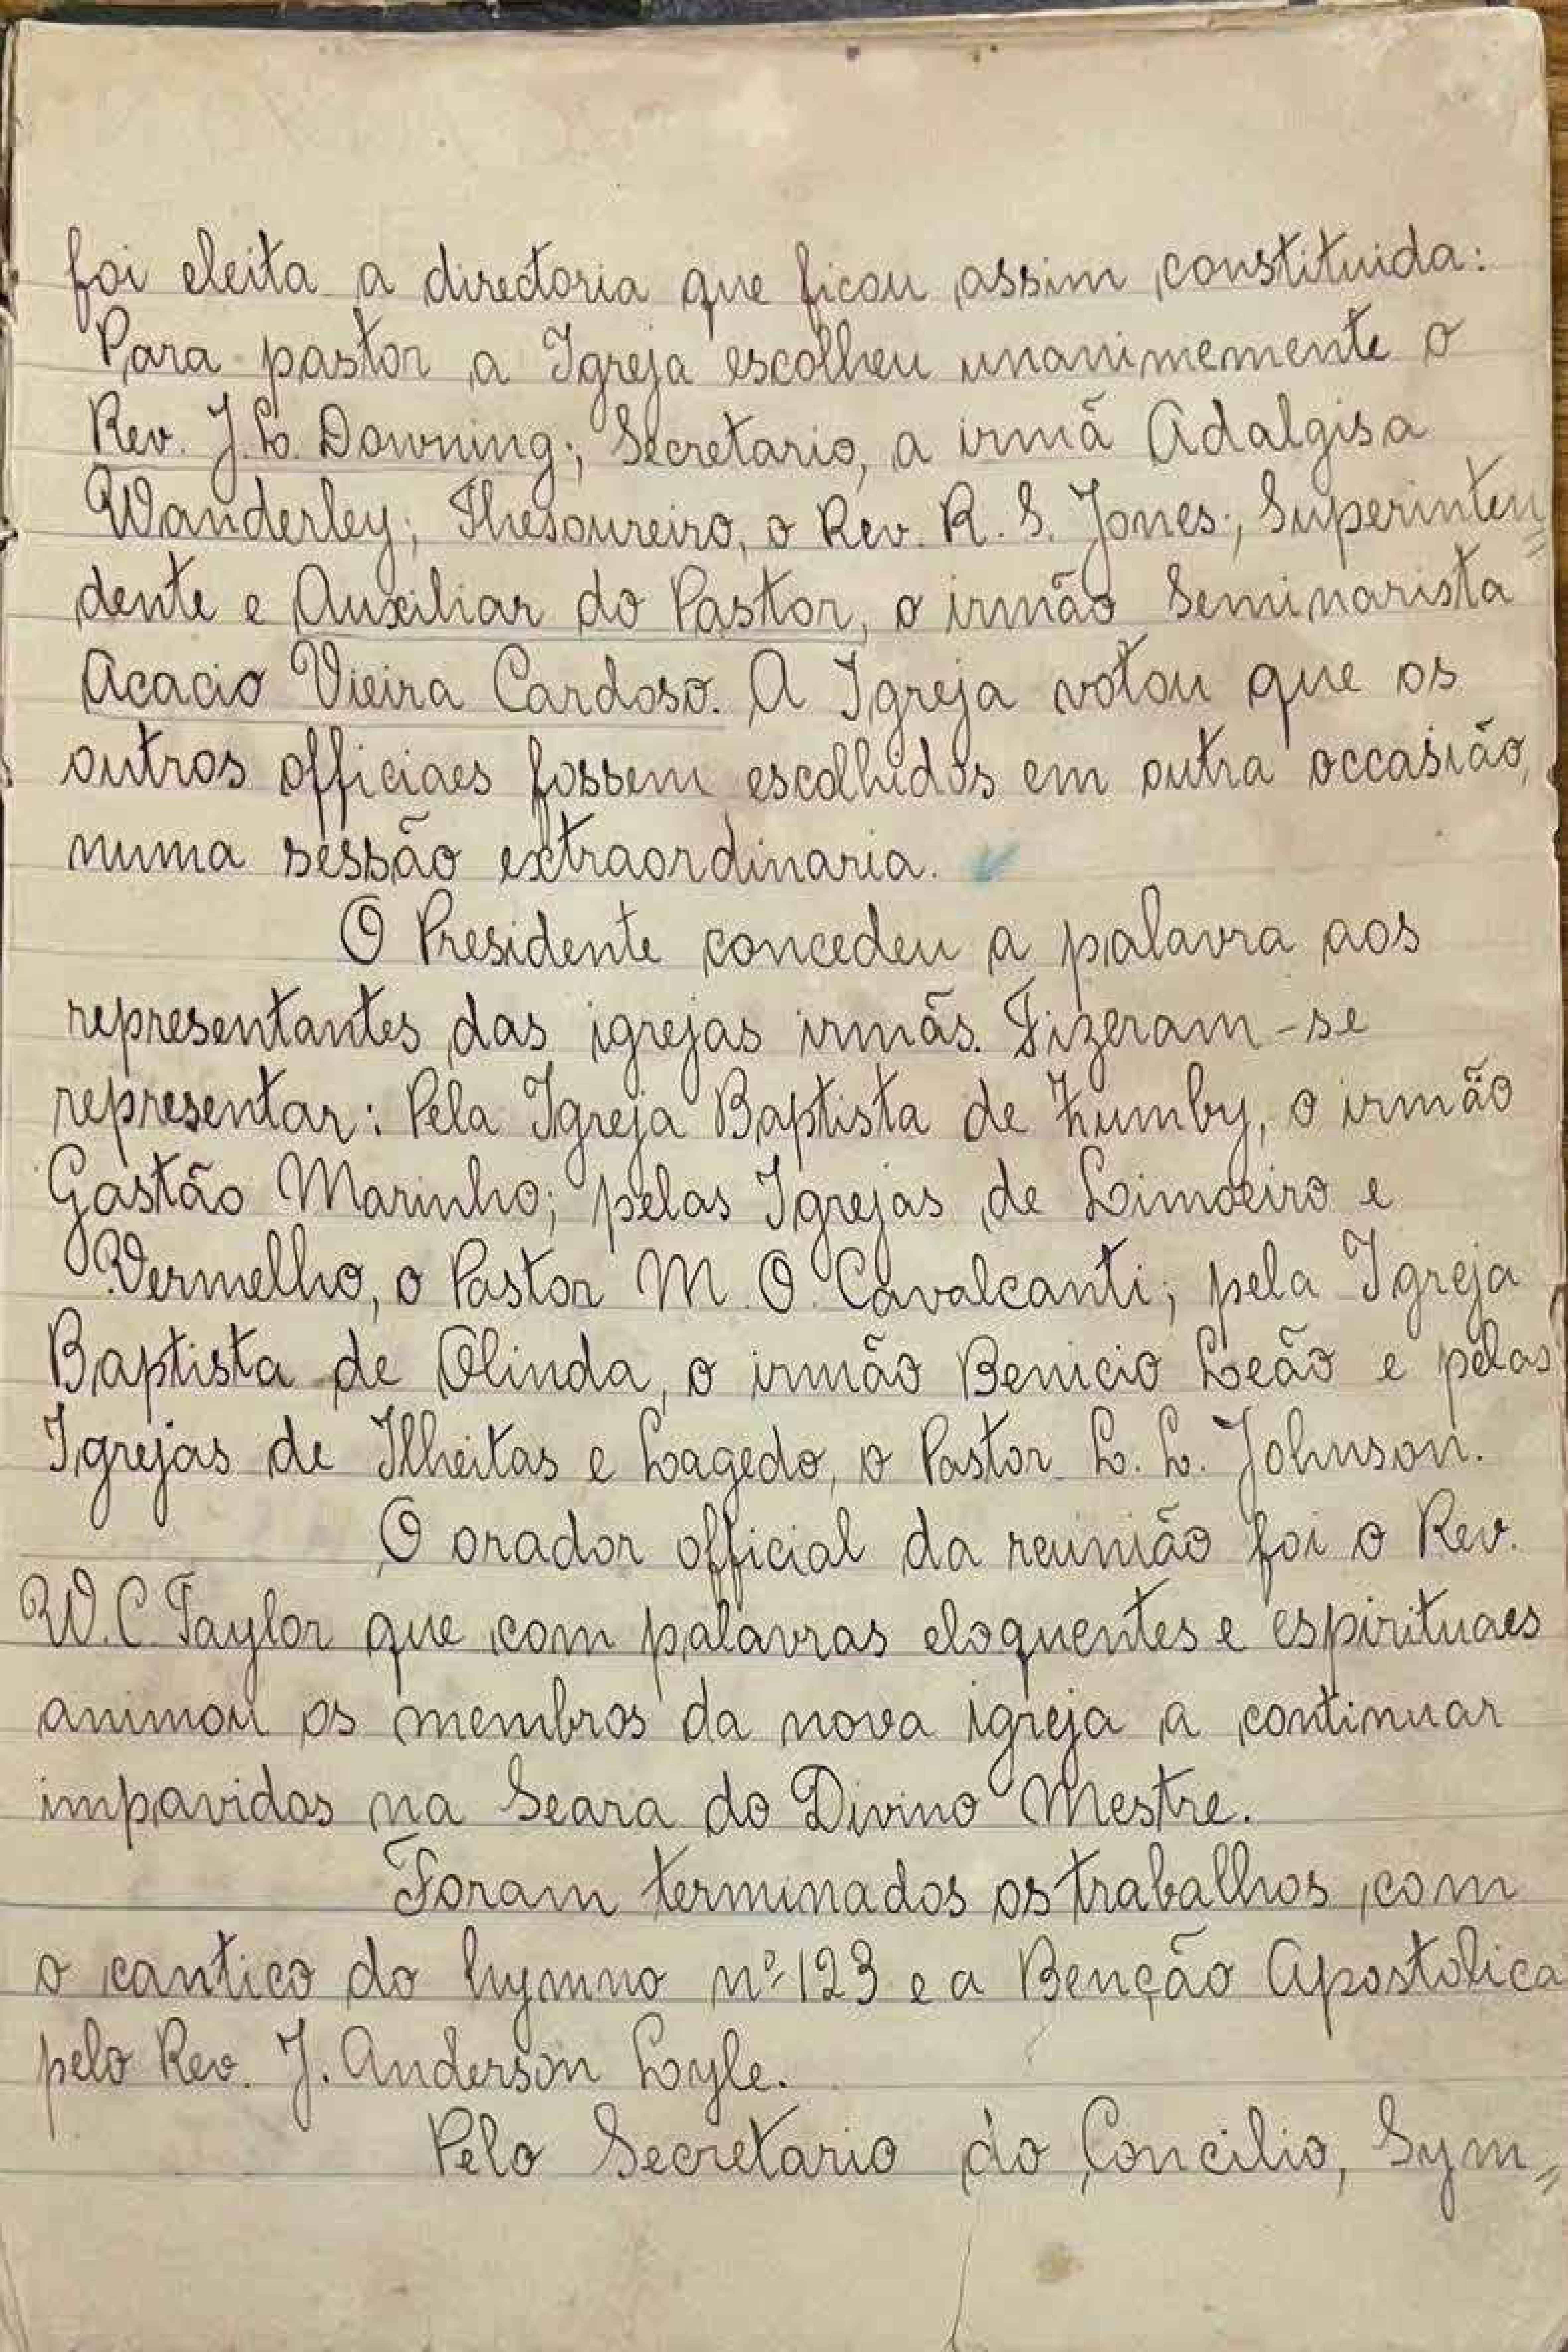 foi eleita a directoria que ficou assim constituida:
Para pastor a Igreja escolheu unanimemente o
Rev. J. L. Downing; Secretario, a irmã Adalgisa
Wanderley; Thesoureiro, o Rev. R. S. Jones; Superinten=
dente e Auxiliar do Pastor, o irmão Seminarista
Acacio Vieira Cardoso. A Igreja votou que os
outros officiaes fossem escolhidos em outra occasião,
numa sessão extraordinaria.
O Presidente concedeu a palavra aos
representantes das igrejas irmãs. Fizeram-se
representar: Pela Igreja Baptista de Zumby, o irmão
Gastão Marinho; pelas Igrejas de Limoeiro e
Vermelho, o Pastor M. O. Cavalcanti; pela Igreja
Baptista de Olinda, o irmão Benicio Leão e pelas
Igrejas de Ilheitas e Lagedo, o Pastor L. L. Johnson.
O orador official da reunião foi o Rev.
W. C. Taylor que com palavras eloquentes e espirituaes
animou os membros da nova igreja a continuar
impavidos na Seara do Divino Mestre.
Foram terminados os trabalhos, com
o cantico do hymno nº 123 e a Benção Apostolica
pelo Rev. J. Anderson Lyle.
Pelo Secretario do Concilio, Sym=